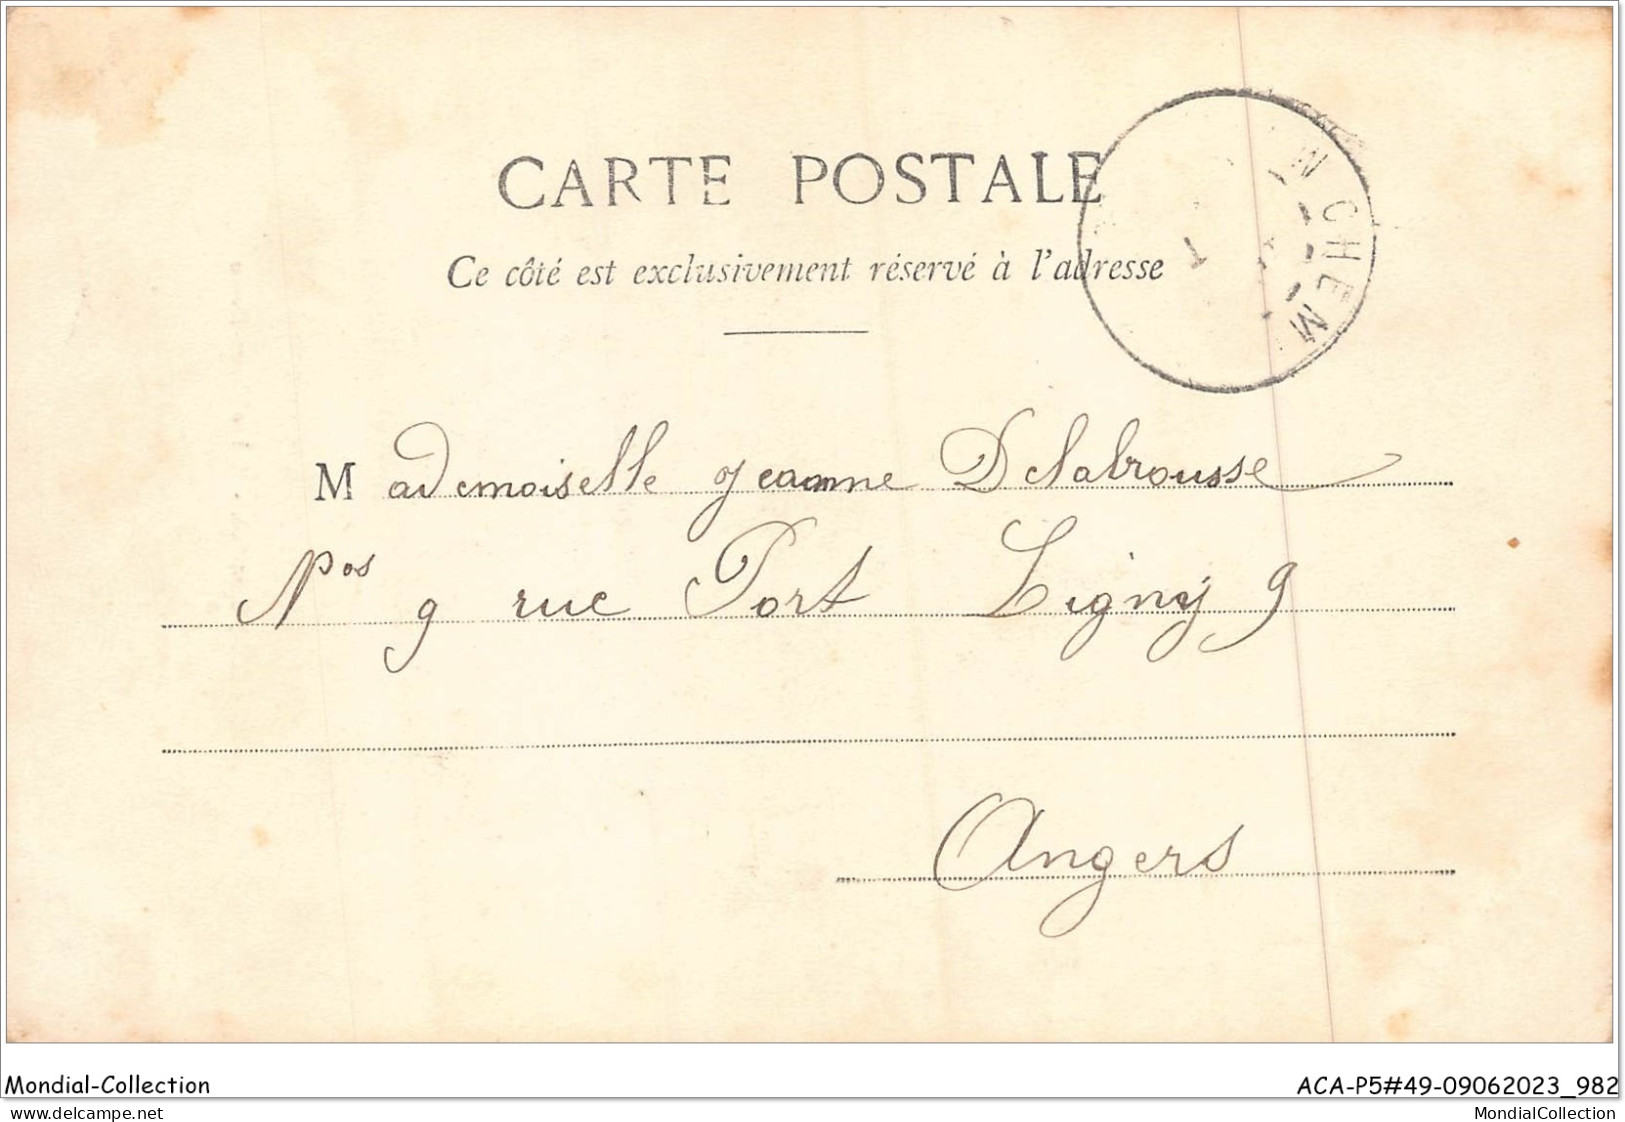 CARTE POSTALE
Ce côté est exclusivement réservé à l'adresse
M CHEM
1
Mademoiselle Jeanne Delabrousse
Nos 9 rue Port Ligny 9
Angers
Mondial-Collection
ACA-P5#49-09062023_982
www.delcampe.net
MondialCollection